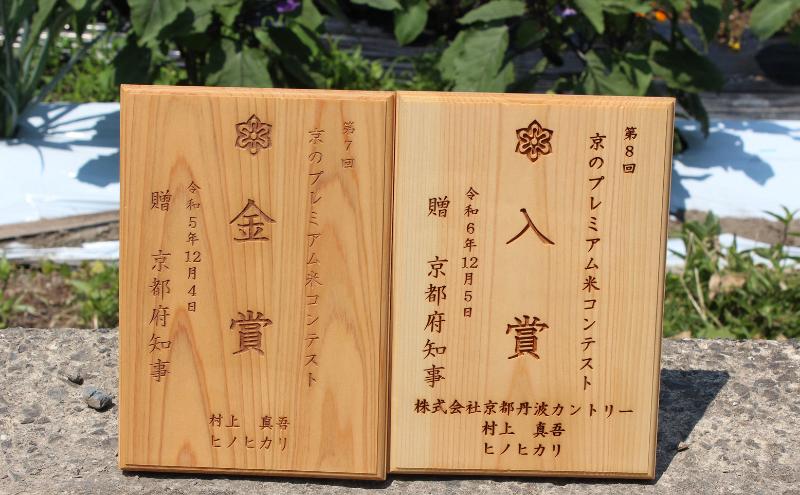 第7回
京のプレミアム米コンテスト
金賞
令和5年12月4日
贈 京都府知事
村上 真吾
ヒノヒカリ
第8回
京のプレミアム米コンテスト
入賞
令和6年12月5日
贈 京都府知事
株式会社京都丹波カントリー
村上 真吾
ヒノヒカリ